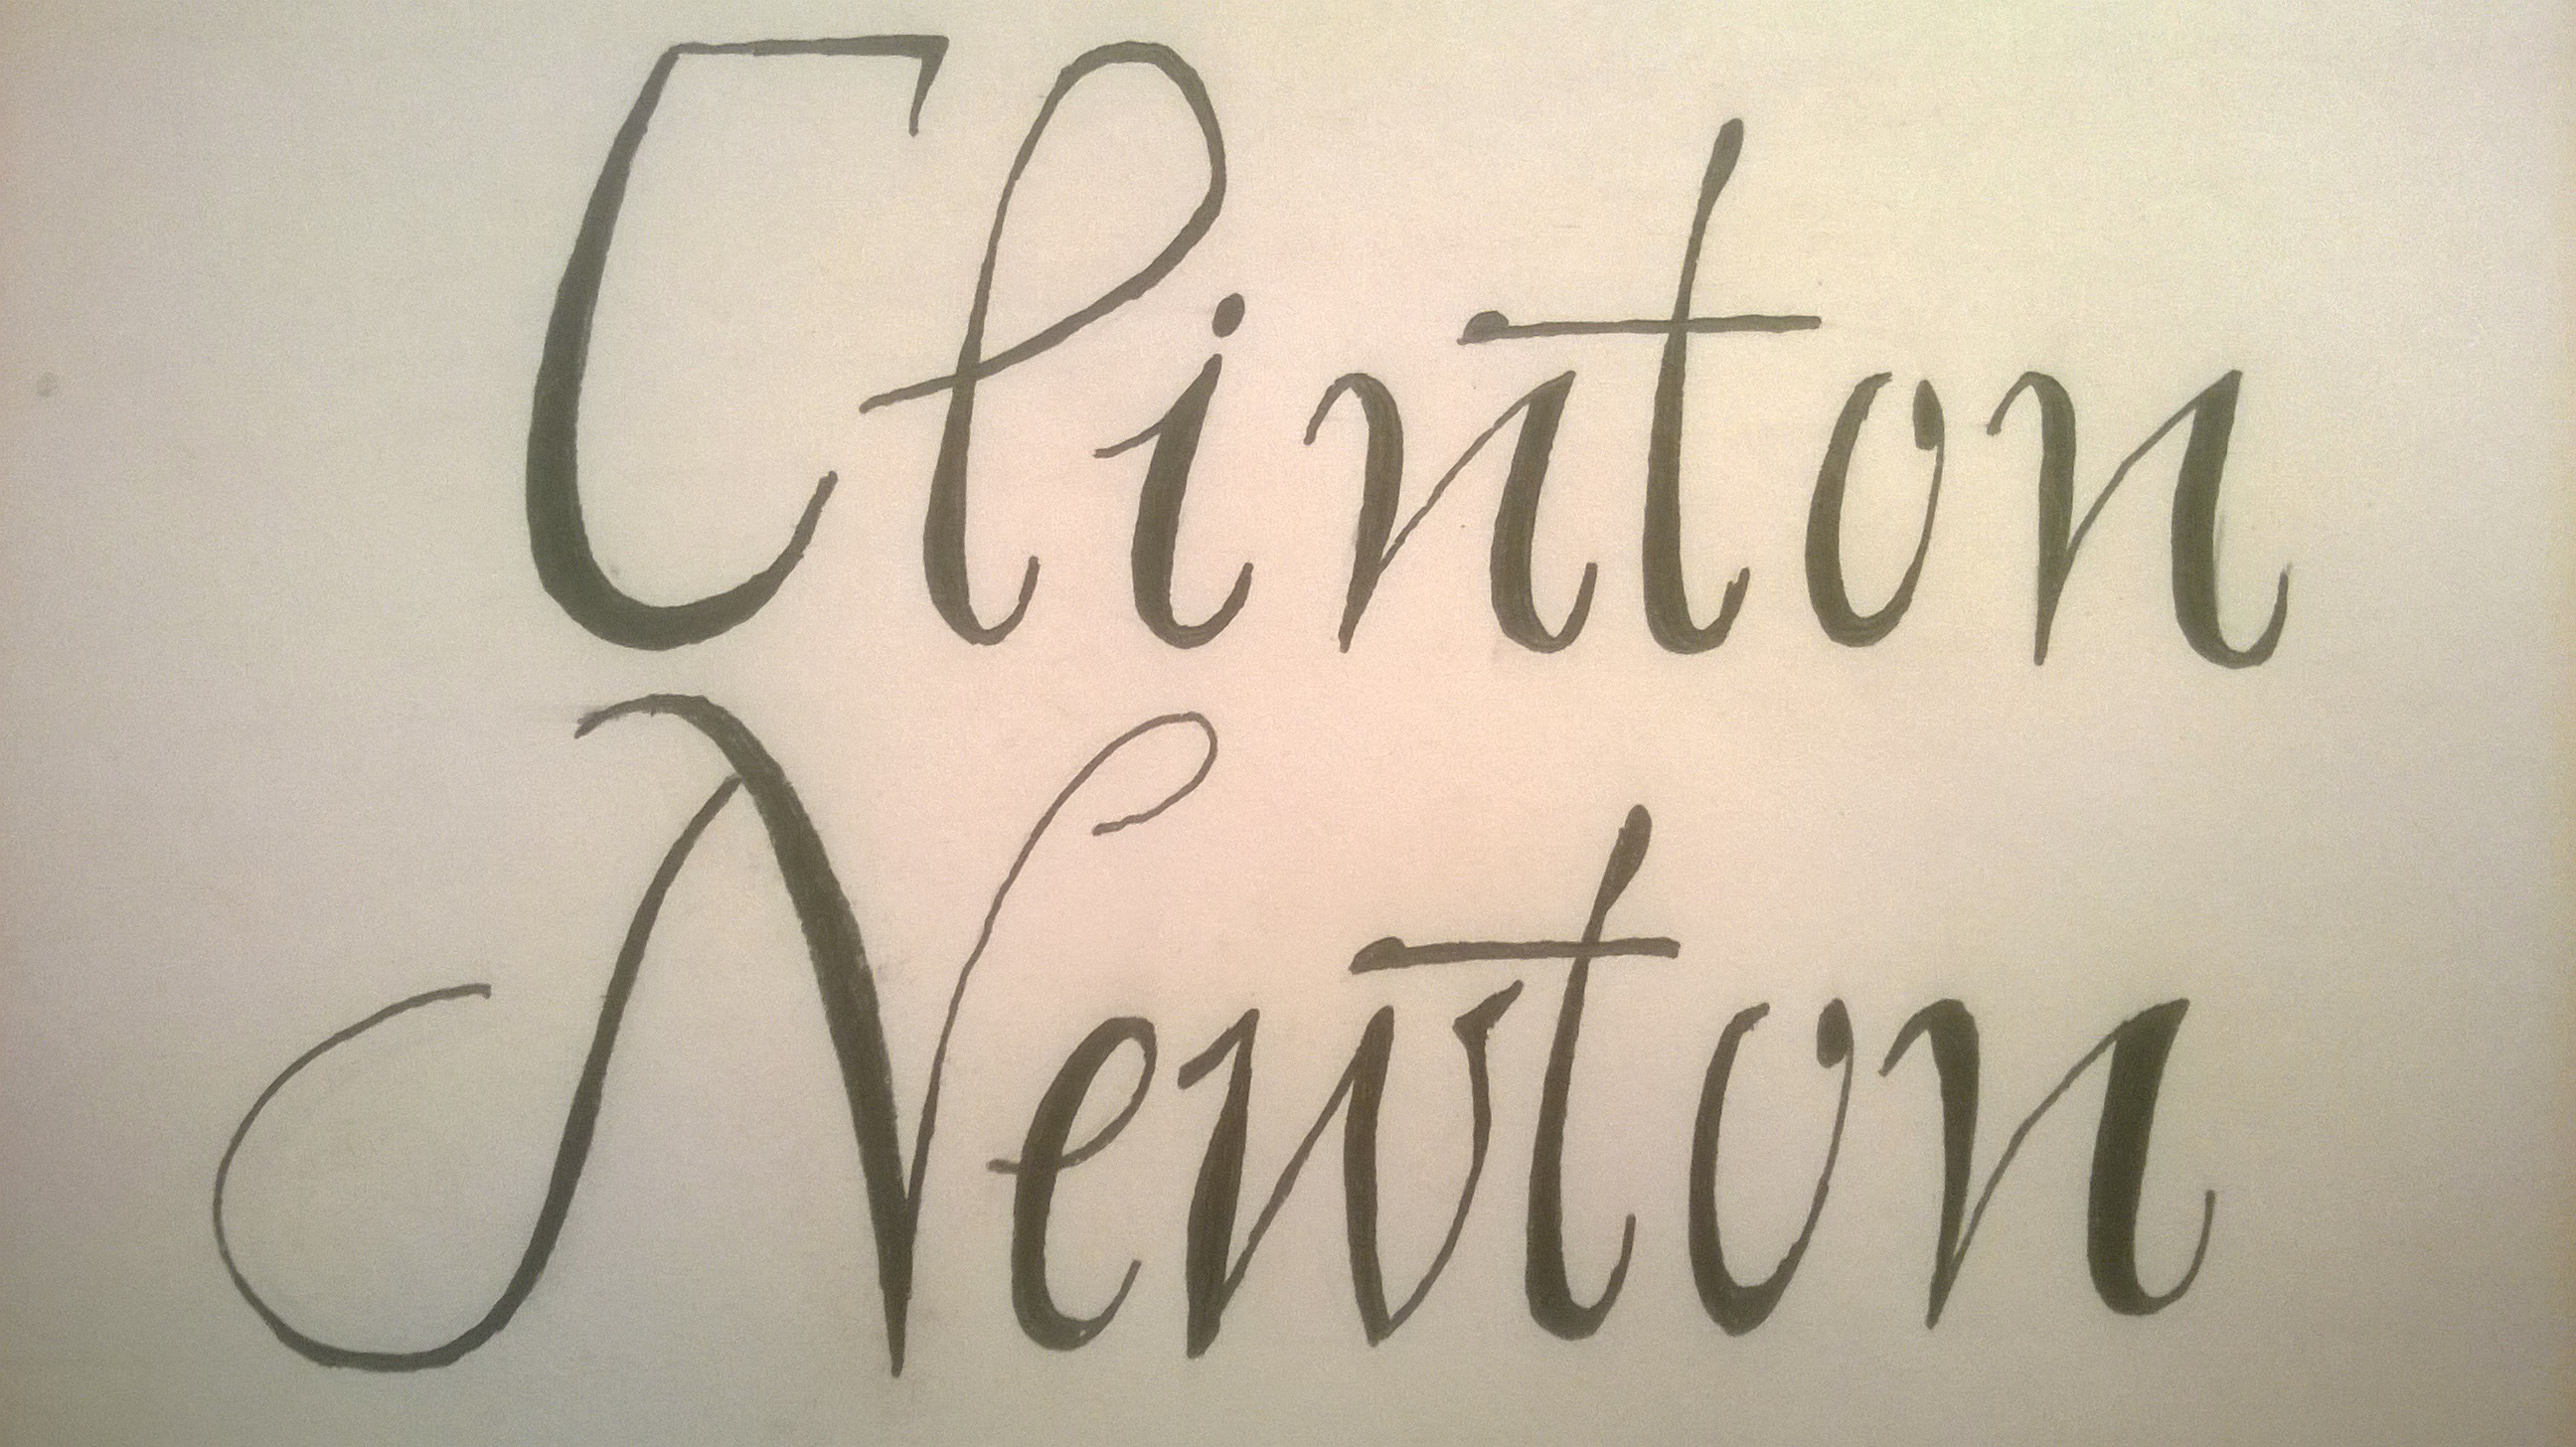 Clinton
Newton